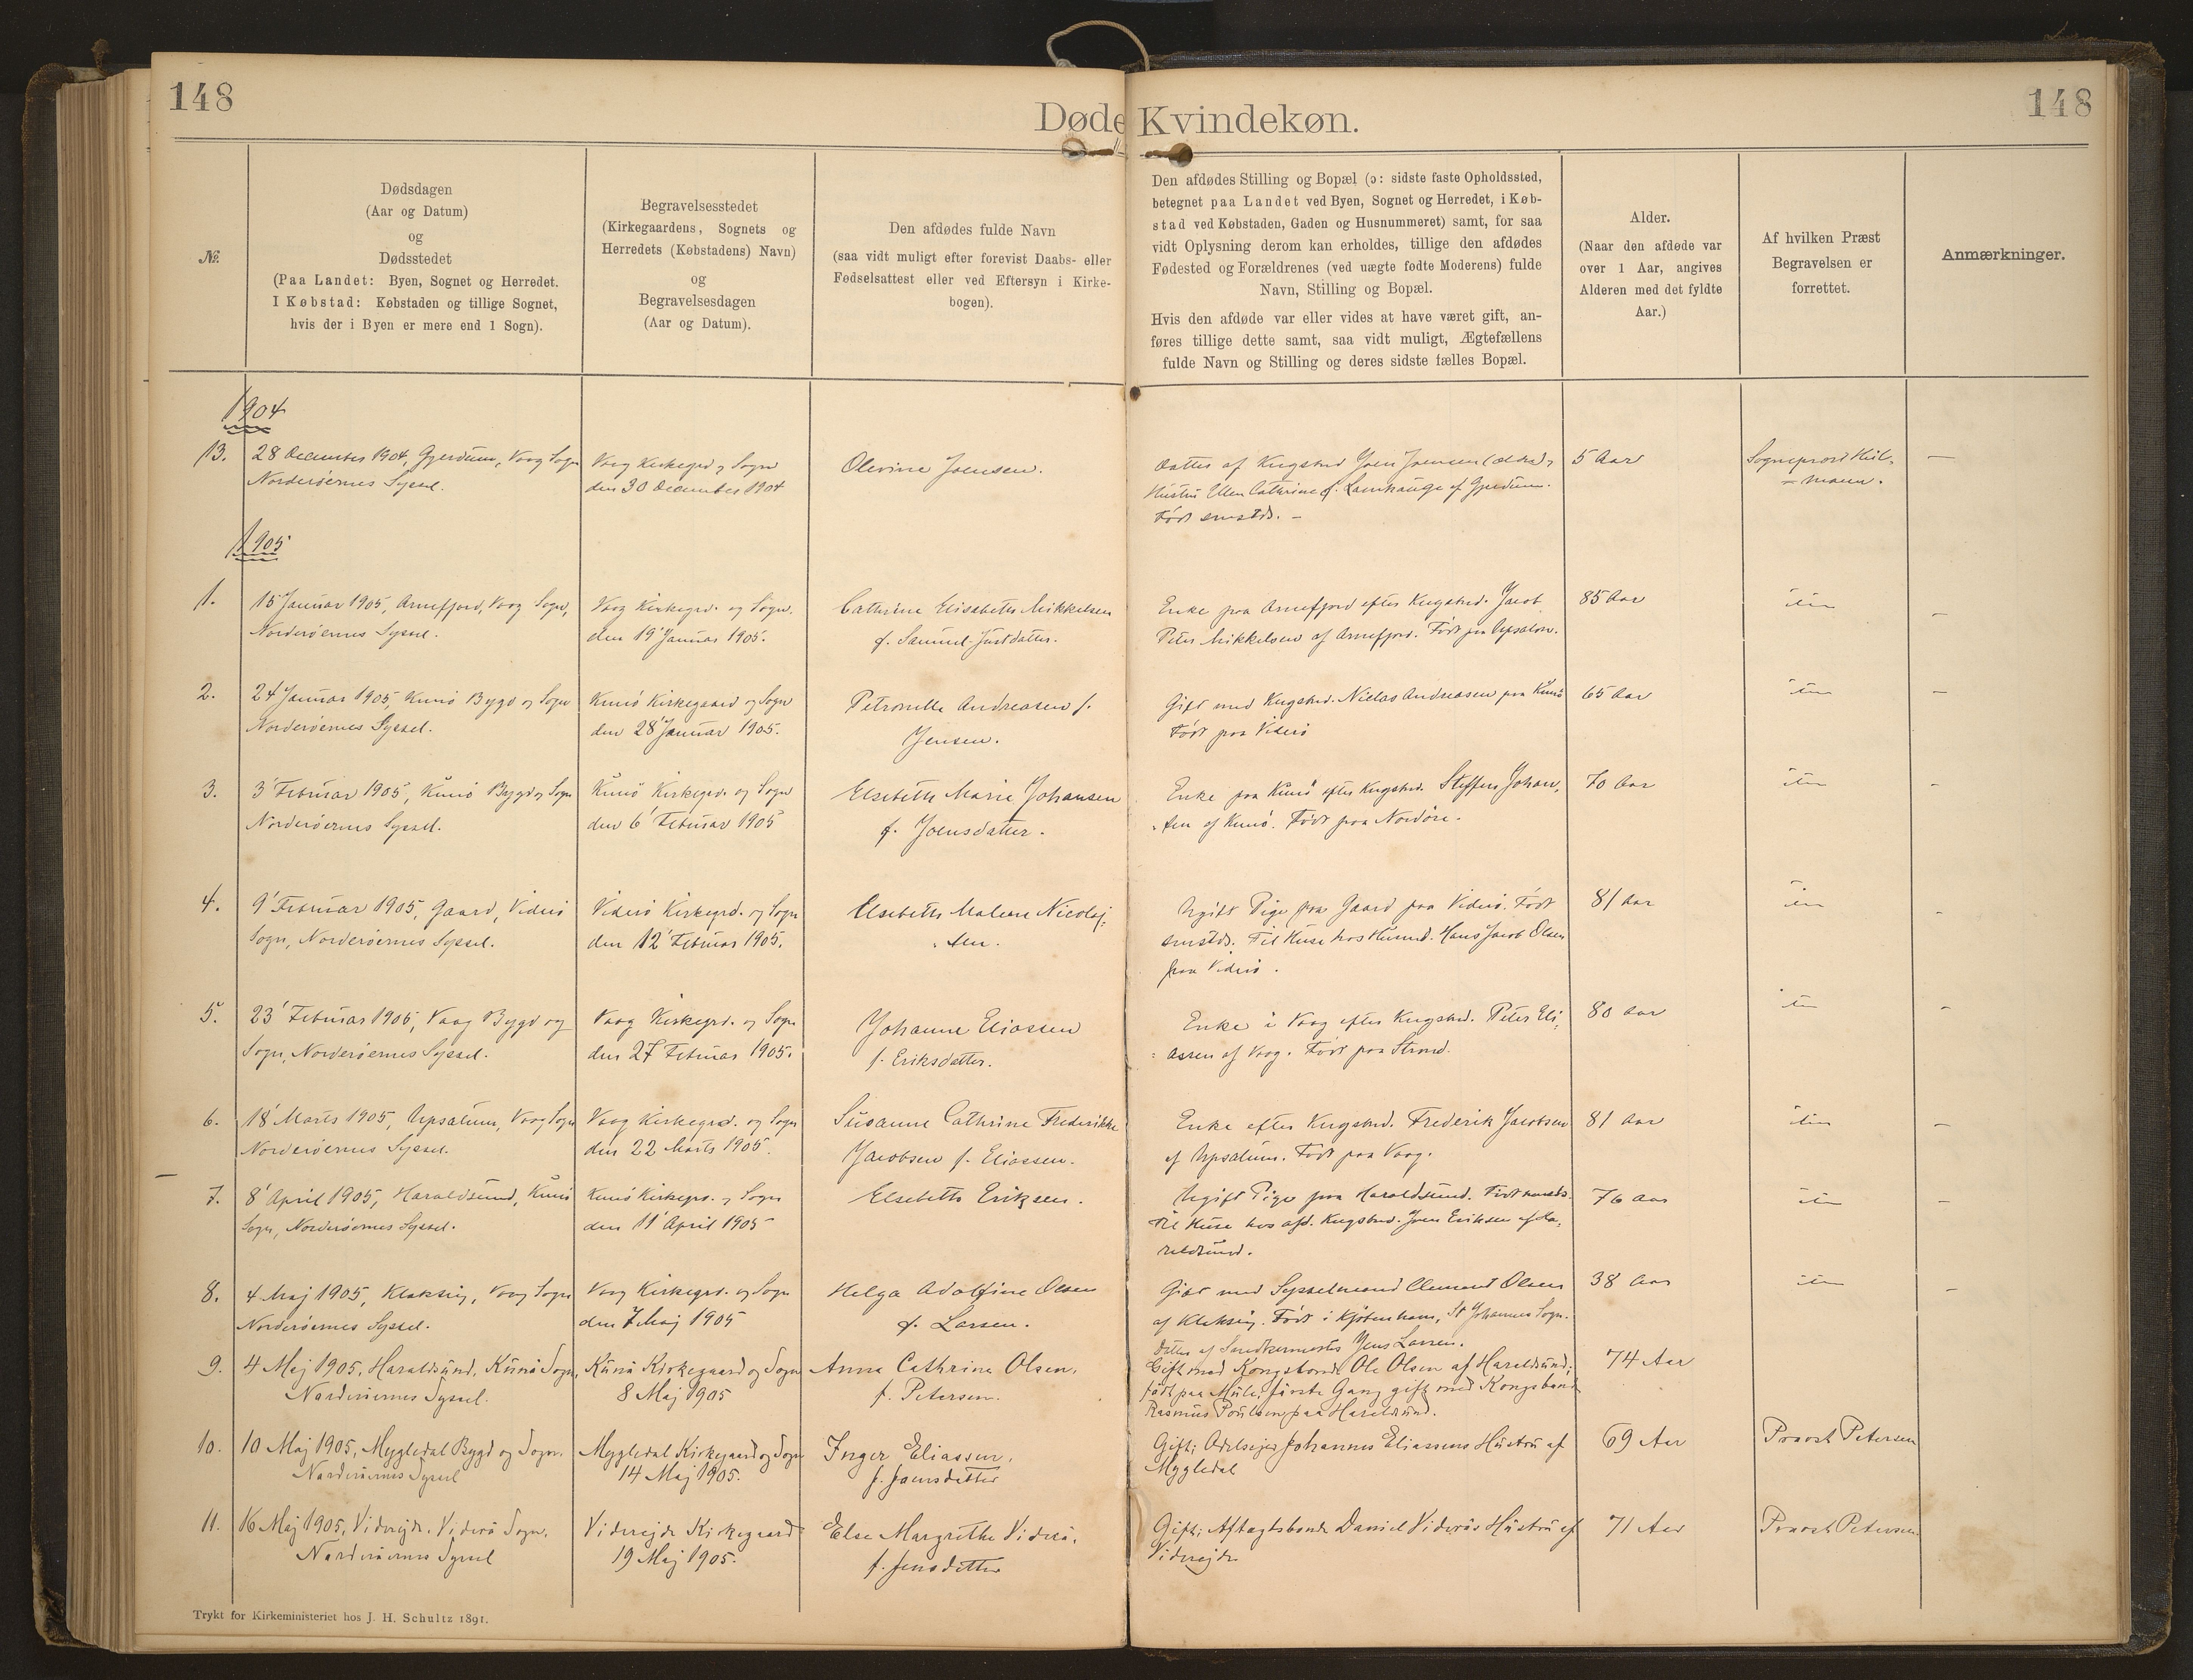 148
148
Døde Kvindekøn.
№.
Dødsdagen
(Aar og Datum)
og
Dødsstedet
(Paa Landet: Byen, Sognet og Herredet.
I Købstad: Købstaden og tillige Sognet,
hvis der i Byen er mere end 1 Sogn).
Begravelsesstedet
(Kirkegaardens, Sognets og
Herredets (Købstadens) Navn)
og
Begravelsesdagen
(Aar og Datum).
Den afdødes fulde Navn
(saa vidt muligt efter forevist Daabs- eller
Fødselsattest eller ved Eftersyn i Kirke-
bogen).
Den afdødes Stilling og Bopæl (ɔ: sidste faste Opholdssted,
betegnet paa Landet ved Byen, Sognet og Herredet, i Køb-
stad ved Købstaden, Gaden og Husnummeret) samt, for saa
vidt Oplysning derom kan erholdes, tillige den afdødes
Fødested og Forældrenes (ved uægte fødte Moderens) fulde
Navn, Stilling og Bopæl.
Hvis den afdøde var eller vides at have været gift, an-
føres tillige dette samt, saa vidt muligt, Ægtefællens
fulde Navn og Stilling og deres sidste fælles Bopæl.
Alder.
(Naar den afdøde var
over 1 Aar, angives
Alderen med det fyldte
Aar.)
Af hvilken Præst
Begravelsen er
forrettet.
Anmærkninger.
1904
13.
28 December 1904, Gjerdum, Vaag Sogn
Norderøernes Syssel.
Vaag Kirkegrd og Sogn
den 30 December 1904
Olevine Joensen.
Datter af Kngsbnd Joen Joensen
Hustru Ellen Cathrine f. af Gjerdum.
Født smstds. –
5 Aar
Sogneprest
1905
1.
15 Januar 1905, Arnefjord, Vaag Sogn,
Norderøernes Syssel.
Vaag Kirkegrd. og Sogn.
den 19' Januar 1905.
Cathrine Elisabeth Mikkelsen
f. Samuel-Justdatter.
Enke paa Arnefjord efter Kngsbnd. Jacob
Peter Mikkelsen af Arnefjord. Født paa
85 Aar
item
2.
24' Januar 1905, Kunø Bygd og Sogn
Norderøernes Syssel.
Kunø Kirkegaard og Sogn
den 28' Januar 1905.
Petronelle Andreasen f.
Jensen.
Gift med Kngsbnd. Niclas Andreasen paa Kunø
Født paa Viderø
65 Aar
item
3.
3' Februar 1905, Kunø Bygd og Sogn
Norderøernes Syssel.
Kunø Kirkegrd. og Sogn
den 6' Februar 1905
Elsebeth Marie Johansen
f. Joensdatter.
Enke paa Kunø efter Kngsbnd. Steffen Johan,
sen af Kunø. Født paa Nordøre.
70 Aar
item
4.
9' Februar 1905, Gaard, Viderø
Sogn, Norderøernes Syssel.
Viderø Kirkegrd. og Sogn
den 12' Februar 1905.
Elsebeth Malene Nicolaj-
sen.
Ugift Pige fra Gaard paa Viderø. Født
smstds. Til Huse hos Husmd. Hans Jacob Olsen
paa Viderø.
81 Aar
item
5.
23' Februar 1905, Vaag Bygd og
Sogn, Norderøernes Syssel.
Vaag Kirkegrd. og Sogn
den 27 Februar 1905.
Johanne Eliassen
f. Eriksdatter.
Enke i Vaag efter Kngsbnd. Peter Eli-
assen af Vaag. Født paa Strand.
80 Aar
item
6.
18' Marts 1905, Arpsalum, Vaag Sogn
Norderøernes Syssel.
Vaag Kirkegrd. og Sogn
den 22 Marts 1905.
Susanne Cathrine Frederikke
Jacobsen f. Eliassen.
Enke efter Kngsbnd. Frederik Jacobsen
af Arpsalum. Født paa Vaag.
81 Aar
item
7.
8' April 1905, Haraldsund, Kunø
Sogn, Norderøernes Syssel.
Kunø Kirkegrd. og Sogn
den 11' April 1905
Elsebeth Eriksen.
Ugift Pige paa Haraldsund. Født smstds.
Til Huse hos afd. Kngsbnd. Joen Eriksen af Ha-
raldsund.
76 Aar
item
8.
4 Maj 1905, Klaksvig, Vaag Sogn
Norderøernes Syssel.
Vaag Kirkegrd. og Sogn
den 7 Maj 1905
Helga Adolfine Olsen
f. Larsen.
Gift med Sysselmand Clement Olsen
af Klaksvig. Født i Kjøbenhavn, St Johannes Sogn.
Datter af Snedkermester Jens Larsen.
38 Aar
item
9.
4 Maj 1905, Haraldsund, Kunø Sogn,
Norderøernes Syssel.
Kunø Kirkegaard og Sogn
8 Maj 1905
Anna Cathrine Olsen,
f. Petersen.
Gift med Kongsbonde Ole Olsen af Haraldsund;
født paa Mule; første Gang gift med Kongsbonde
Rasmus Poulsen paa Haraldsund.
74 Aar
10.
10 Maj 1905, Mygledal Bygd og Sogn.
Norderøernes Syssel
Mygledal Kirkegaard og Sogn
14 Maj 1905.
Inger Eliassen,
f. Joensdatter
Gift; Odelsejer Johannes Eliassens Hustru af
Mygledal
69 Aar
Provst Petersen
11.
16 Maj 1905, Viderejde, Viderø Sogn.
Norderøernes Syssel
Viderejde Kirkegaard
19 Maj 1905.
Else Margrethe Viderø,
f. Jensdatter
Gift; Aftagtsbonde Daniel Viderøs Hustru af
Viderejde
71 Aar
Provst Petersen
Trykt for Kirkeministeriet hos J. H. Schultz 1891.